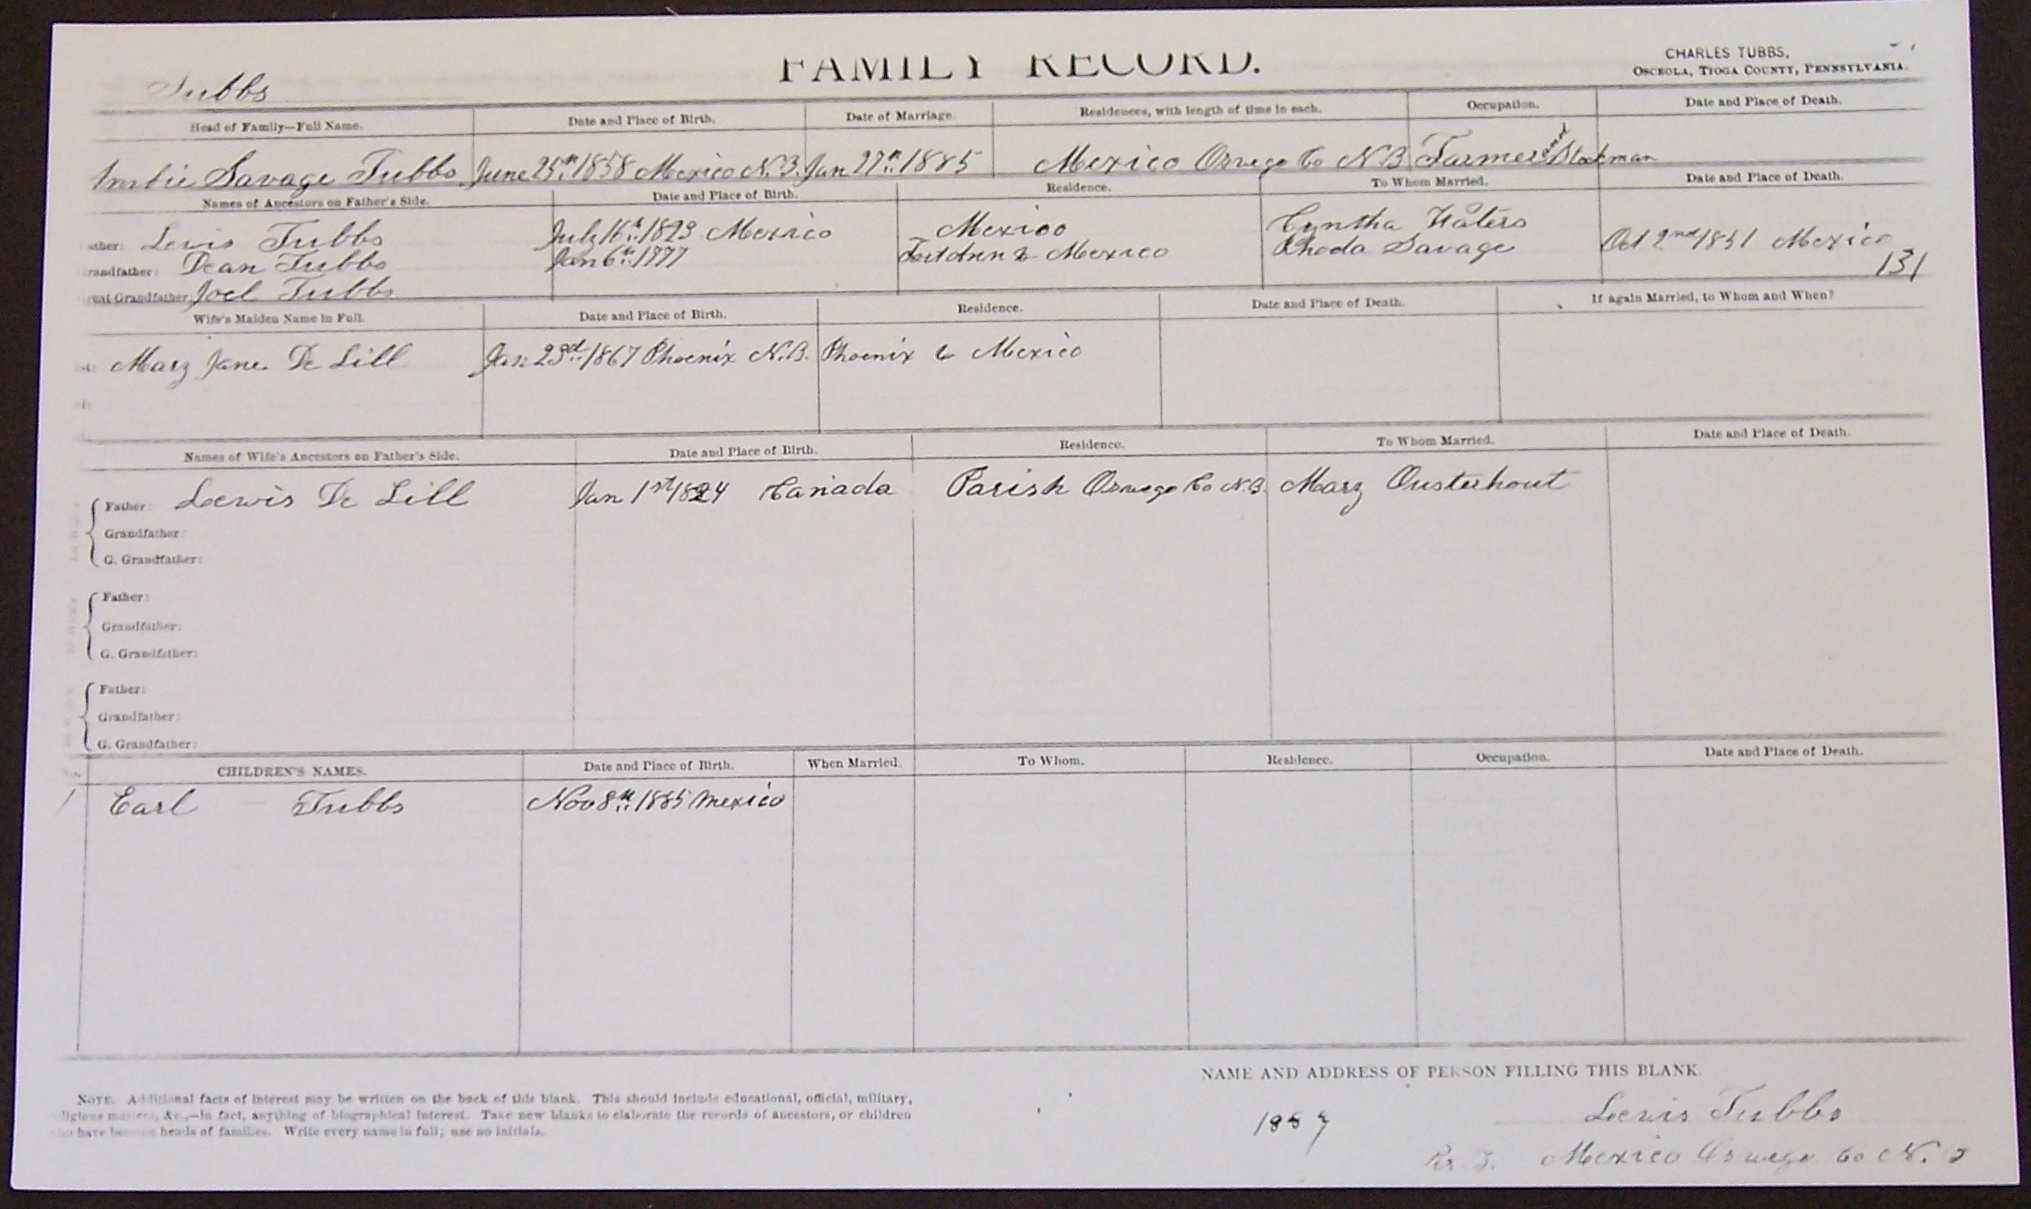 FAMILY RECORD.
CHARLES TUBBS,
OSCEOLA, TIOGA COUNTY, PENNSYLVANIA.
Tubbs
Head of Family—Full Name. Date and Place of Birth. Date of Marriage. Residences, with length of time in each. Occupation. Date and Place of Death.
Savage Tubbs June 25th 1858 Mexico N.Y. Jan 27th 1885 Mexico Oswego Co N.Y. Farmer and Stockman
Names of Ancestors on Father's Side. Date and Place of Birth. Residence. To Whom Married. Date and Place of Death.
ather: Lewis Tubbs July 16th 1823 Mexico Mexico Cyntha Waters
randfather: Dean Tubbs Jan 6th 1777 & Mexico Rhoda Savage Oct 2nd 1851 Mexico
eat Grandfather: Joel Tubbs 131
Wife's Maiden Name in Full. Date and Place of Birth. Residence. Date and Place of Death. If again Married, to Whom and When?
Mary Jane De Lill Jan 23rd 1867 Phoenix N.Y. Phoenix & Mexico
Names of Wife's Ancestors on Father's Side. Date and Place of Birth. Residence. To Whom Married. Date and Place of Death.
Father: Lewis De Lill Jan 1st 1824 Canada Parish Oswego Co N.Y. Mary Ousterhout
Grandfather:
G. Grandfather:
Father:
Grandfather:
G. Grandfather:
Father:
Grandfather:
G. Grandfather:
No. CHILDREN'S NAMES. Date and Place of Birth. When Married. To Whom. Residence. Occupation. Date and Place of Death.
1 Earl Tubbs Nov 8th 1885 Mexico
NAME AND ADDRESS OF PERSON FILLING THIS BLANK.
NOTE. Additional facts of interest may be written on the back of this blank. This should include educational, official, military,
ligious matters, &c.,—in fact, anything of biographical interest. Take new blanks to elaborate the records of ancestors, or children
ho have become heads of families. Write every name in full; use no initials.
1887 Lewis Tubbs
Mexico Oswego Co N. Y